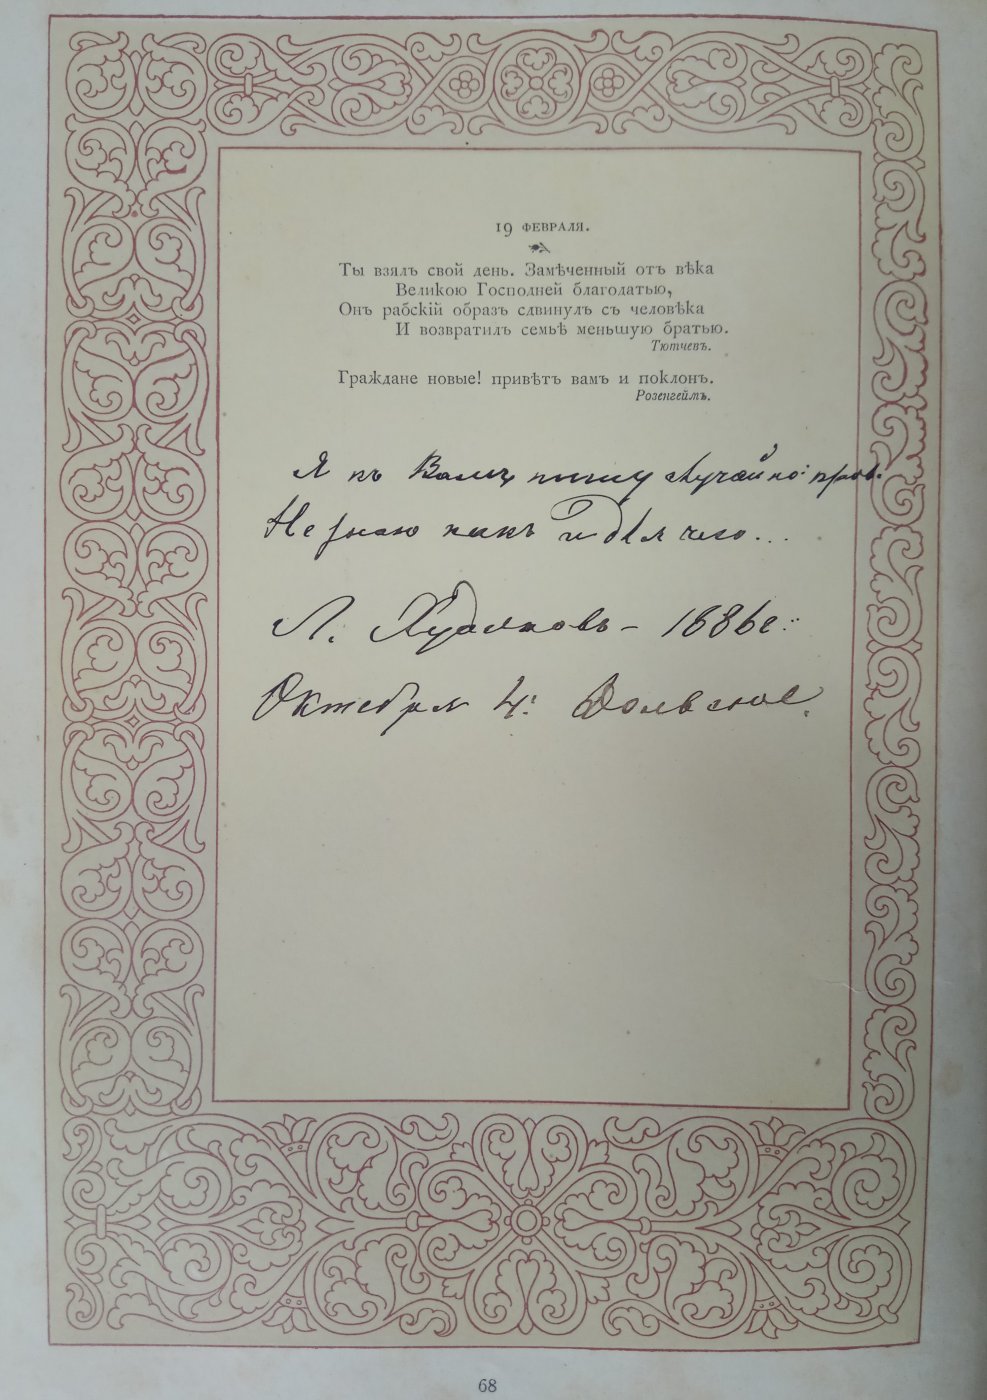 19 ФЕВРАЛЯ.
Ты взялъ свой день. Замѣченный отъ вѣка
Великою Господней благодатью,
Онъ рабскій образъ сдвинулъ съ человѣка
И возвратилъ семьѣ меньшую братью.
Тютчевъ.
Граждане новые! привѣтъ вамъ и поклонъ.
Розенгеймъ.
Я къ Вамъ пишу случайно: прав:
Не знаю какъ и для чего...
Л. Худяковъ – 1886 г.
Октебря 4:
68